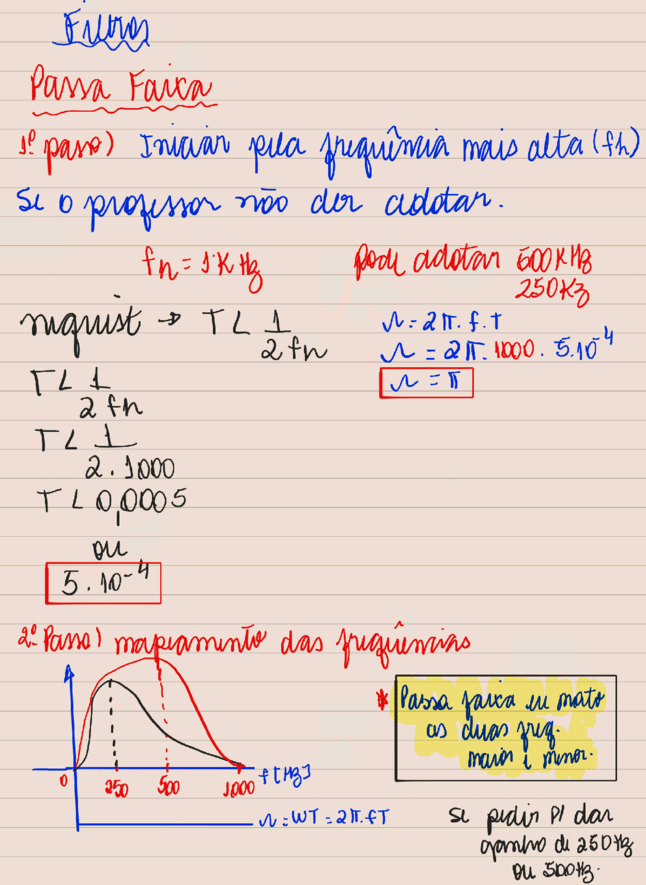 Filtros
Passa Faixa
1º passo) Iniciar pela frequência mais alta (fh)
Se o professor não der adotar.
fh = 1KHz
pode adotar 500KHz
250Kz
niquist → T < 1/2fh
Ω = 2π.f.T
Ω = 2π.1000.5.10⁻⁴
Ω = π
T < 1/2fh
T < 1/2.1000
T < 0,0005
ou
5.10⁻⁴
2º Passo) mapeamento das frequências
* Passa faixa eu mato
as duas freq.
maior e menor.
0 250 500 1000 f[Hz]
Ω = WT = 2π.fT
Se pedir P/ dar
ganho de 250Hz
ou 500Hz.